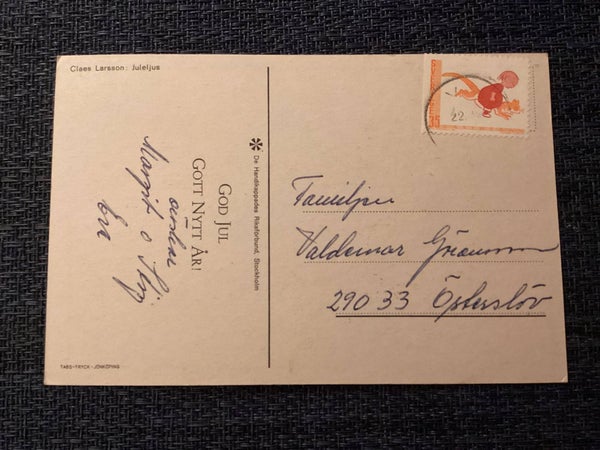 Claes Larsson: Juleljus
GOD JUL
GOTT NYTT ÅR!
önskar
Margit o Stig
De Handikappades Riksförbund, Stockholm
TABS-TRYCK - JÖNKÖPING
22.
Familjen
Valdemar
290 33 Öpterslöv